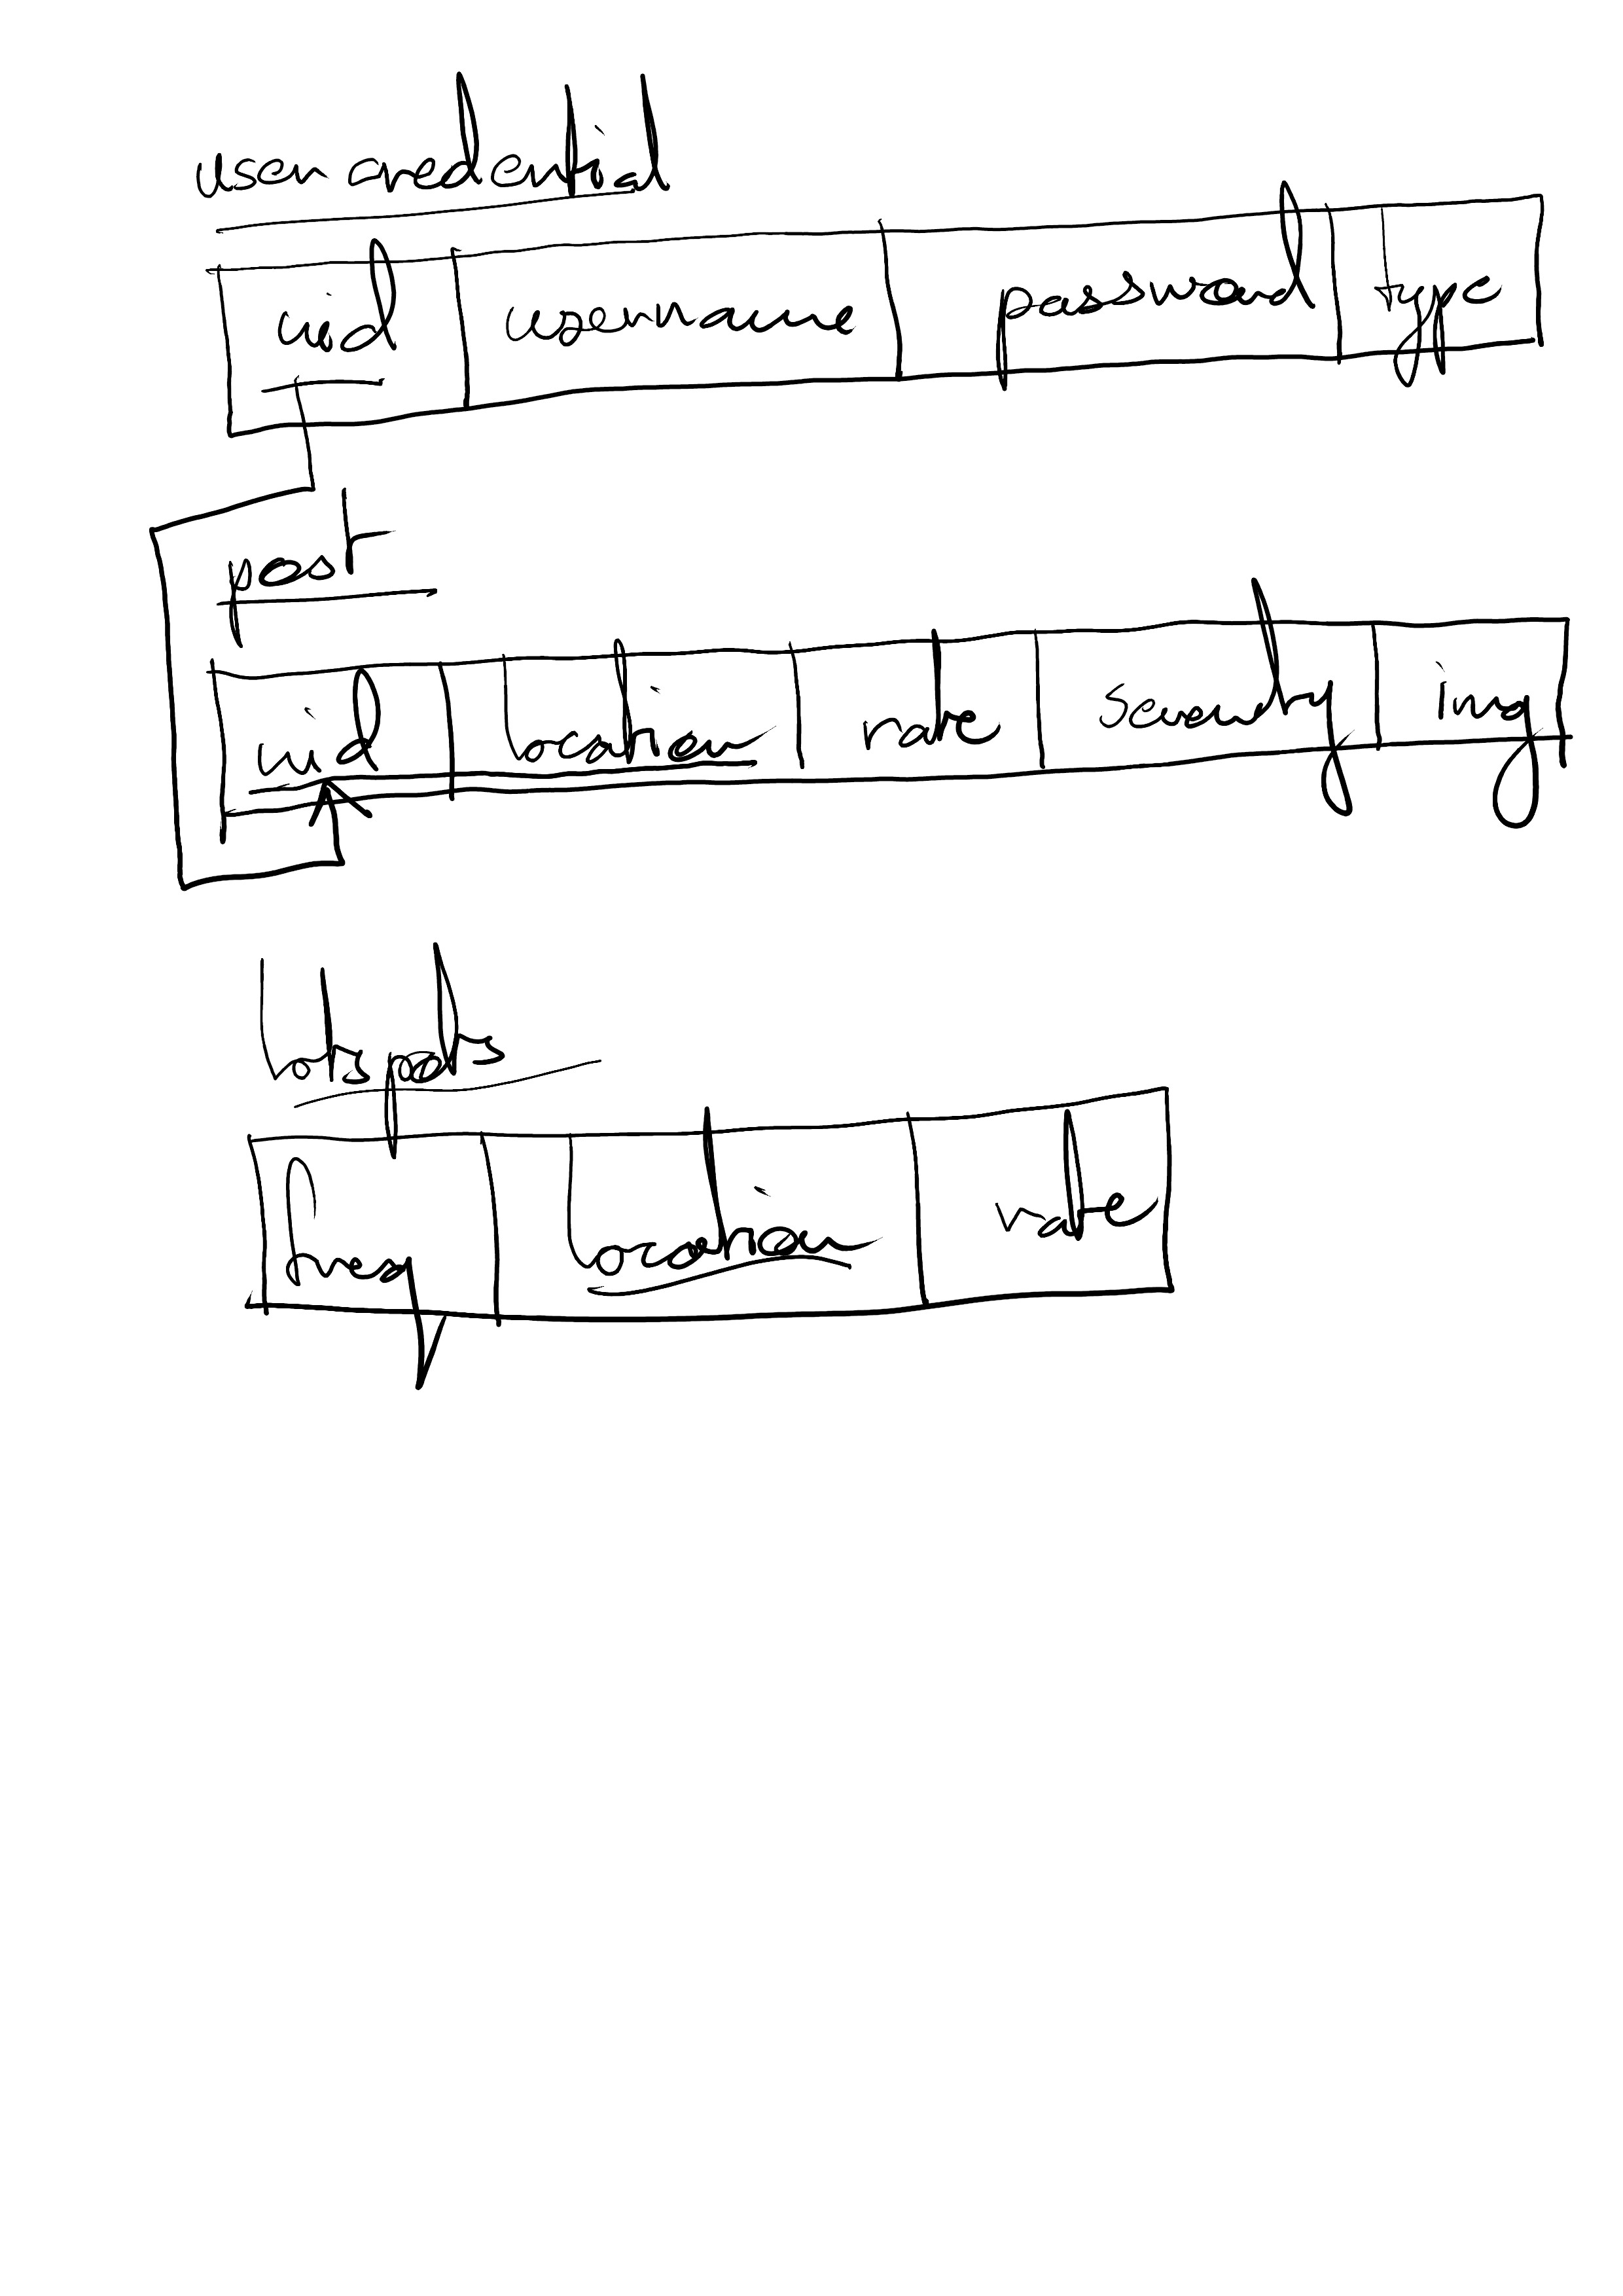 user credential
uid username password type
post
uid location rate severity img
hotspots
freq location rate